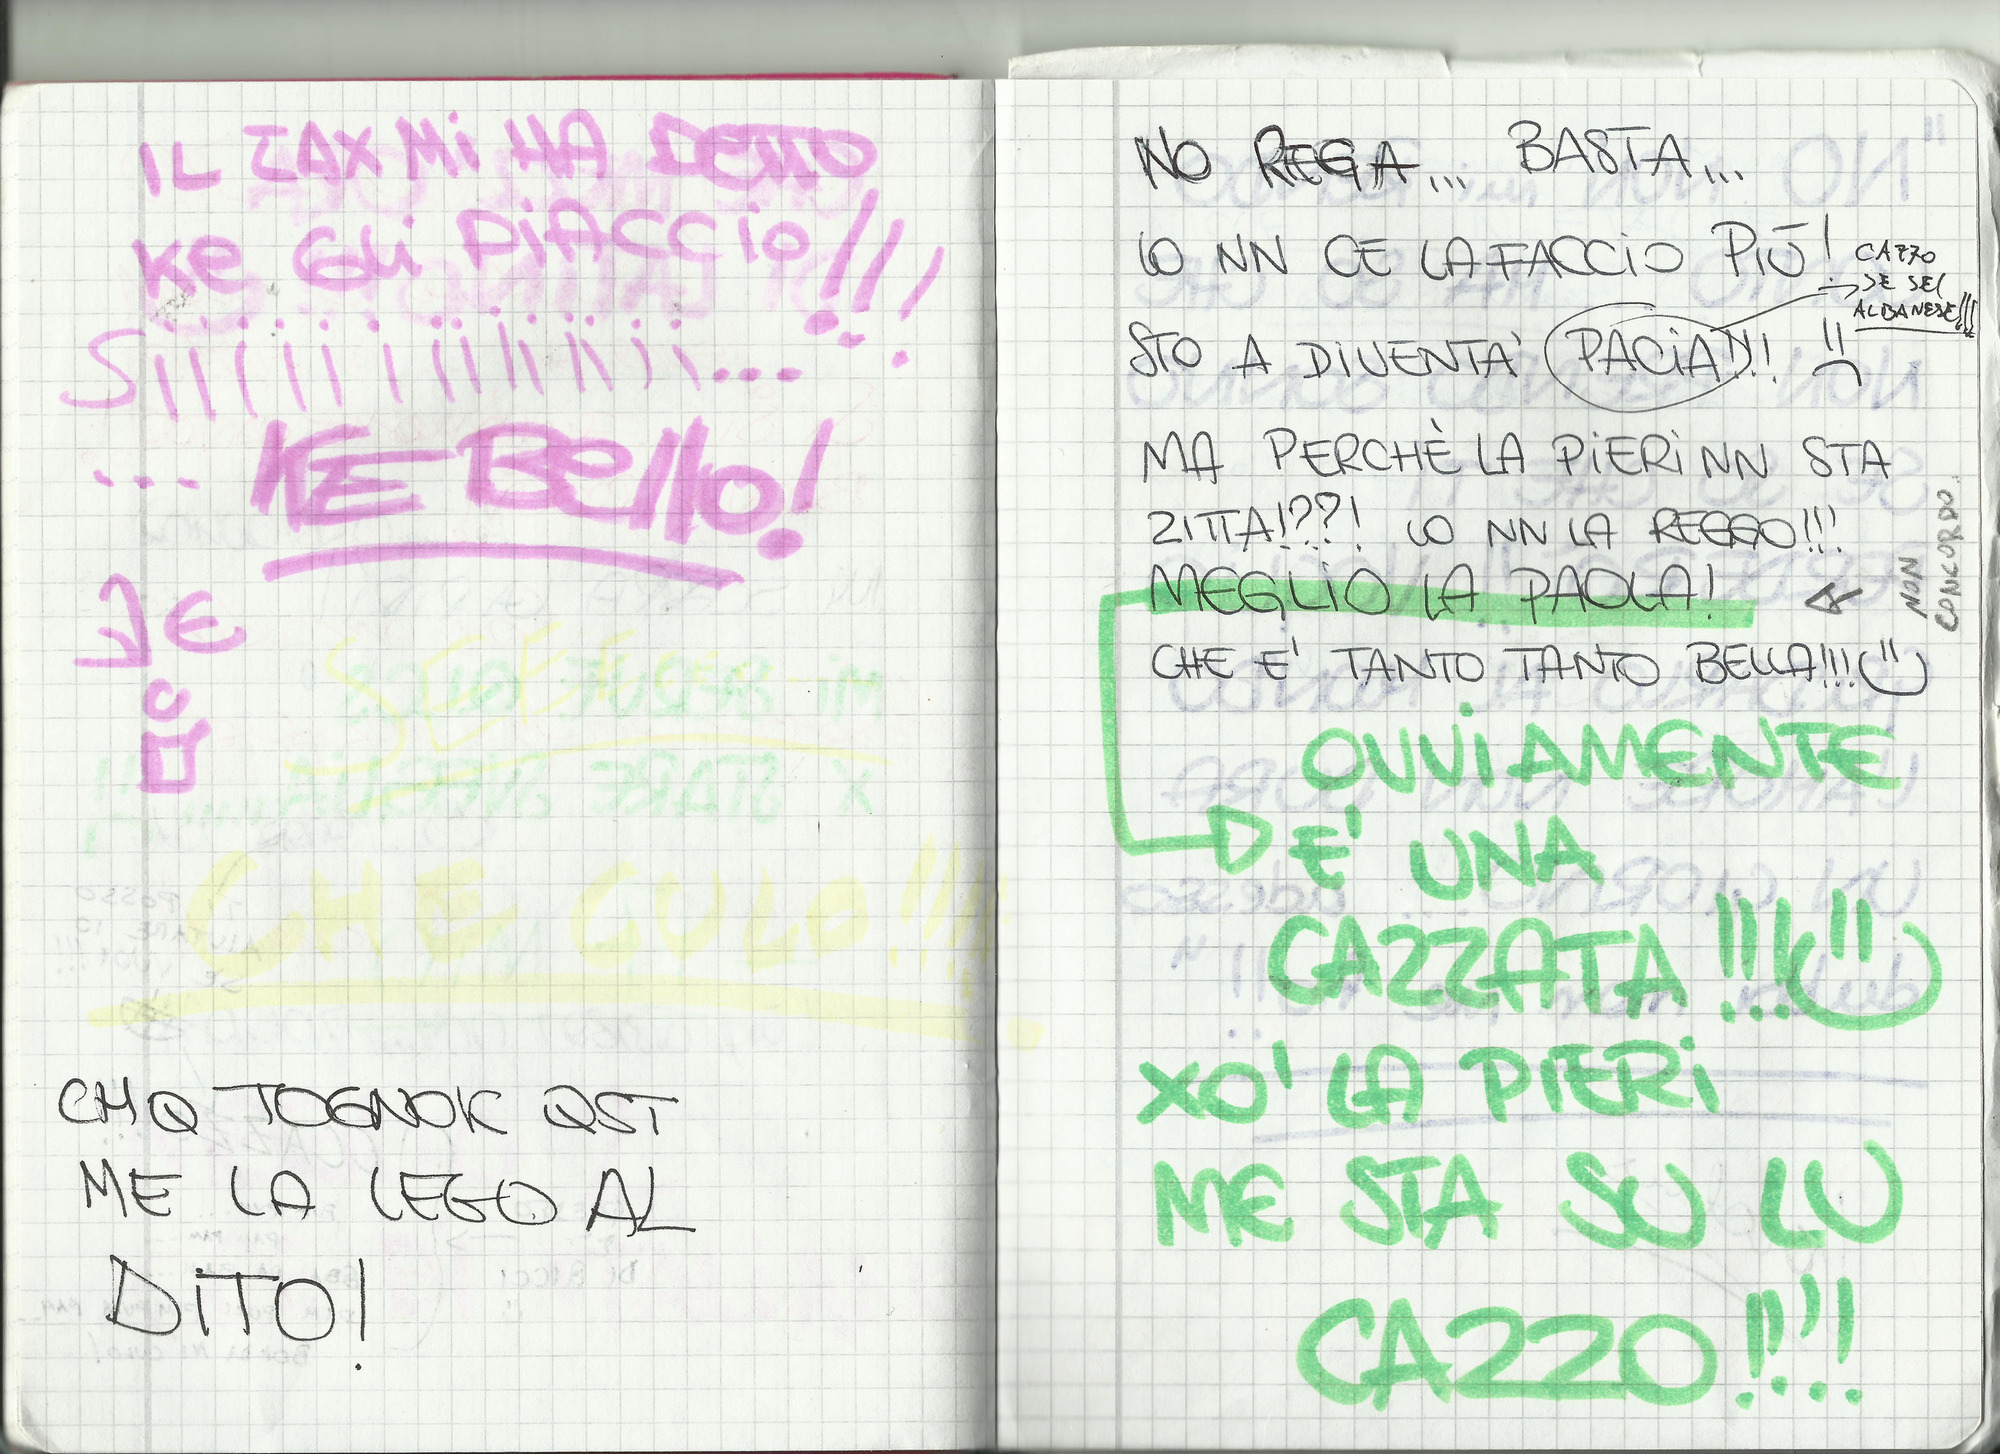 IL ZAX Mi HA DETTO
Ke Gli PiACCio!!!!
Siiiiiiiiiiiiiii...
... KE Bello!
CHQ TOGNOK QST
ME LA LEGO AL
DiTO!
NO REGA... BASTA...
IO NN CE LA FACCiO PiÙ!
CAZZO
SE SEI
ALBANESE!!!
STO A DIVENTA' PACiA!!!
MA PERCHÈ LA PiERi NN STA
ZITTA!??! IO NN LA REGGO!!!
MEGLiO LA PAOLA!
NON
CONCORDO.
CHE E' TANTO TANTO BELLA!!!
OVViAMENTE
E' UNA
CAZZATA!!!
XO' LA PiERi
ME STA SU LU
CAZZO!!!!
CHE CULO!!!!